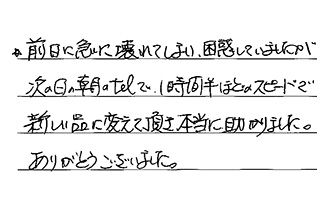 前日に急に壊れてしまい、困惑していましたが
次の日の朝のtelで、1時間半ほどのスピードで
新しい品に変えて頂き本当に助かりました。
ありがとうございました。